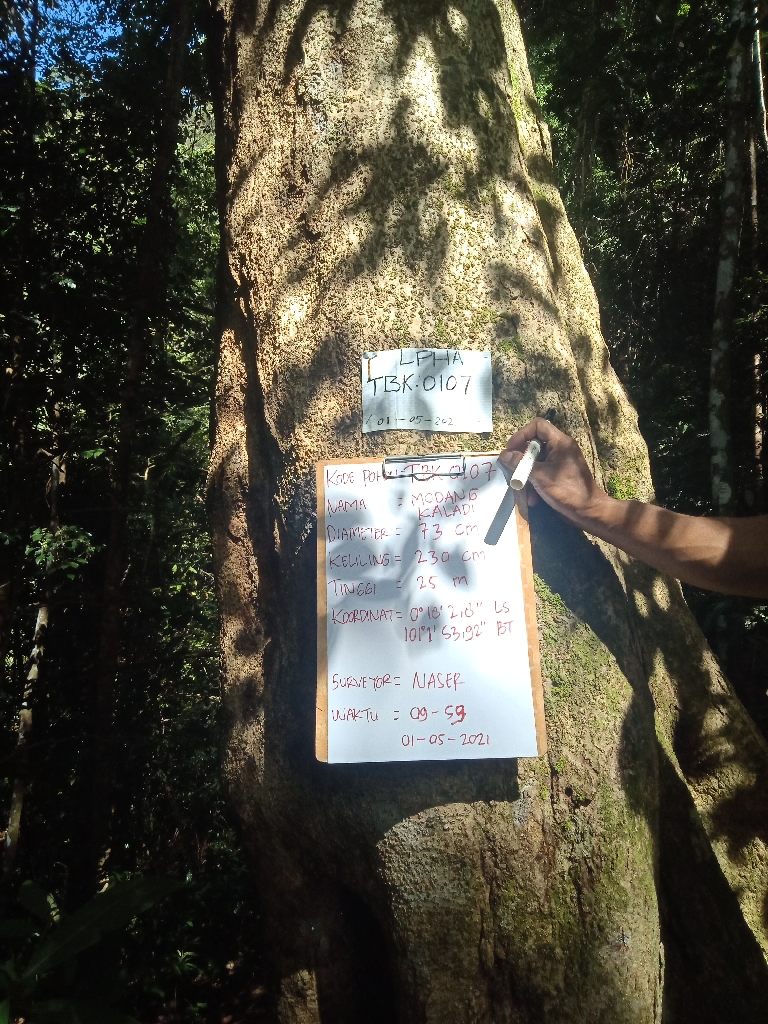 LPHA
TBK.0107
01-05-202
KODE POHON = TBK 0107
NAMA = MEDANG
KALADI
DIAMETER = 73 cm
KELILING = 230 cm
TINGGI = 25 m
KOORDINAT = 0°18' 2,8" LS
101°1' 53,92" BT
SURVEYOR = NASER
WAKTU = 09-59
01-05-2021